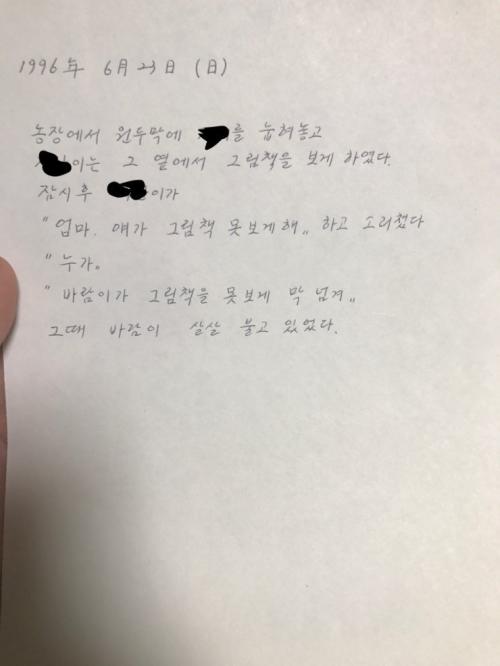 1996年 6月 23日 (日)
농장에서 원두막에 를 눕혀놓고
이는 그 옆에서 그림책을 보게 하였다.
잠시후 이가
"엄마. 얘가 그림책 못보게해„ 하고 소리쳤다
"누가。
"바람이가 그림책을 못보게 막 넘겨„
그때 바람이 살살 불고 있었다.